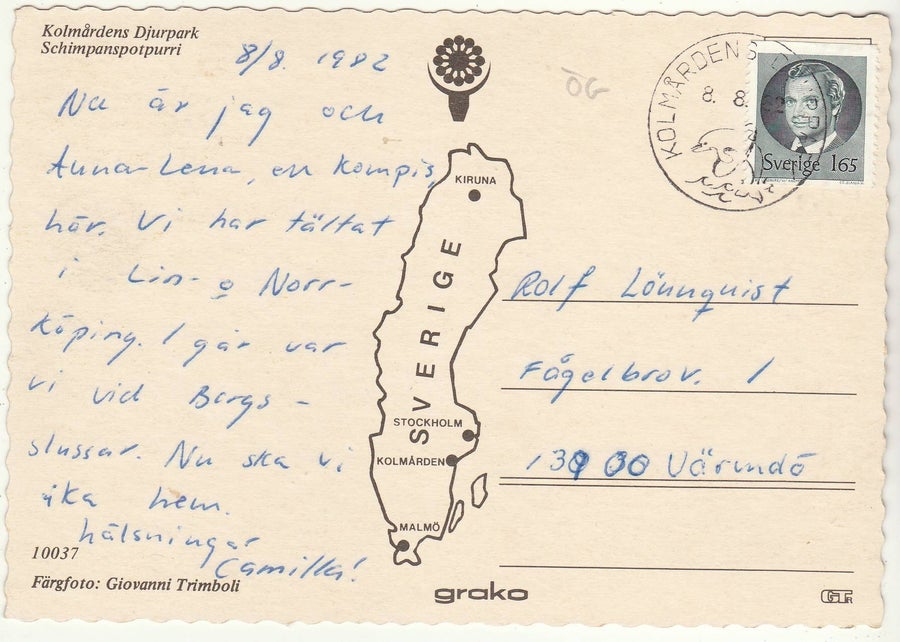 Kolmårdens Djurpark
Schimpanspotpurri
8/8. 1982
Nu är jag och
Anna-Lena, en kompis,
här. Vi har tältat
i Lin- o Norr-
köping. I går var
vi vid Bergs-
slussar. Nu ska vi
åka hem.
hälsningar
Camilla!
10037
Färgfoto: Giovanni Trimboli
KIRUNA
SVERIGE
STOCKHOLM
KOLMÅRDEN
MALMÖ
grako
ÖG
KOLMÅRDENS
8. 8.
Sverige 165
Rolf Lönnquist
Fågelbrov. 1
139 00 Värmdö